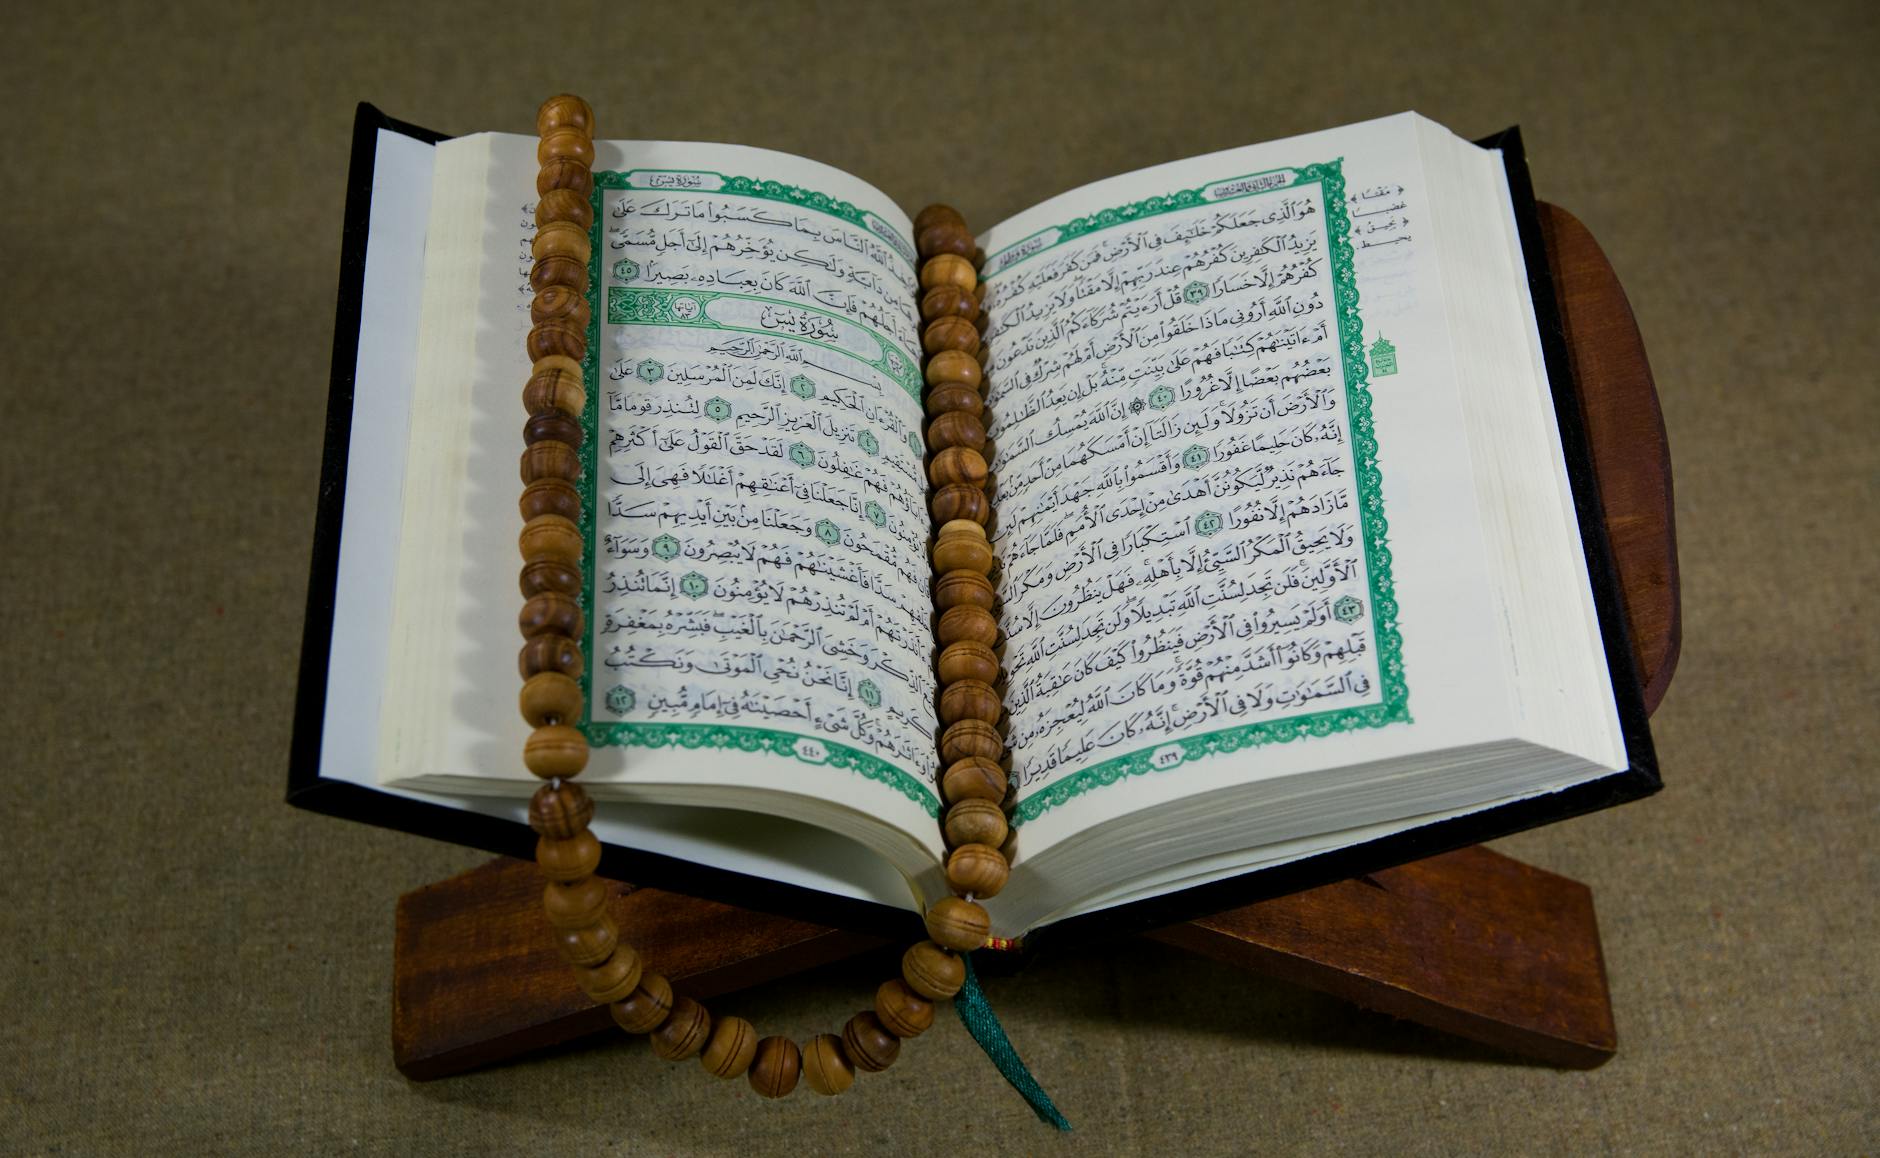 سُورَةُ فَاطِر
هُوَ ٱلَّذِى جَعَلَكُمْ خَلَٰٓئِفَ فِى ٱلْأَرْضِ فَمَن كَفَرَ فَعَلَيْهِ كُفْرُهُۥ
يَزِيدُ ٱلْكَٰفِرِينَ كُفْرُهُمْ عِندَ رَبِّهِمْ إِلَّا مَقْتًا وَلَا يَزِيدُ
كُفْرُهُمْ إِلَّا خَسَارًا ٣٩ قُلْ أَرَءَيْتُمْ شُرَكَآءَكُمُ ٱلَّذِينَ تَدْعُونَ
دُونِ ٱللَّهِ أَرُونِى مَاذَا خَلَقُوا۟ مِنَ ٱلْأَرْضِ أَمْ لَهُمْ شِرْكٌ فِى
أَمْ ءَاتَيْنَٰهُمْ كِتَٰبًا فَهُمْ عَلَىٰ بَيِّنَتٍ مِّنْهُ بَلْ إِن يَعِدُ ٱلظَّٰلِمُونَ
بَعْضُهُم بَعْضًا إِلَّا غُرُورًا ٤٠ ۞ إِنَّ ٱللَّهَ يُمْسِكُ
وَٱلْأَرْضَ أَن تَزُولَا وَلَئِن زَالَتَآ إِنْ أَمْسَكَهُمَا مِنْ أَحَدٍ مِّنۢ
إِنَّهُۥ كَانَ حَلِيمًا غَفُورًا ٤١ وَأَقْسَمُوا۟ بِٱللَّهِ جَهْدَ أَيْمَٰنِهِمْ
جَآءَهُمْ نَذِيرٌ لَّيَكُونُنَّ أَهْدَىٰ مِنْ إِحْدَى ٱلْأُمَمِ فَلَمَّا جَآءَهُمْ
مَّا زَادَهُمْ إِلَّا نُفُورًا ٤٢ ٱسْتِكْبَارًا فِى ٱلْأَرْضِ وَمَكْرَ
وَلَا يَحِيقُ ٱلْمَكْرُ ٱلسَّيِّئُ إِلَّا بِأَهْلِهِۦ فَهَلْ يَنظُرُونَ إِلَّا
ٱلْأَوَّلِينَ فَلَن تَجِدَ لِسُنَّتِ ٱللَّهِ تَبْدِيلًا وَلَن تَجِدَ لِسُنَّتِ ٱللَّهِ
٤٣ أَوَلَمْ يَسِيرُوا۟ فِى ٱلْأَرْضِ فَيَنظُرُوا۟ كَيْفَ كَانَ عَٰقِبَةُ ٱلَّذِينَ
قَبْلِهِمْ وَكَانُوٓا۟ أَشَدَّ مِنْهُمْ قُوَّةً وَمَا كَانَ ٱللَّهُ لِيُعْجِزَهُۥ مِن
فِى ٱلسَّمَٰوَٰتِ وَلَا فِى ٱلْأَرْضِ إِنَّهُۥ كَانَ عَلِيمًا قَدِيرًا
٤٣٩
﴿ مَقْتًا ﴾
غضبا
﴿ يَحِيقُ ﴾
يحيط.
سُورَةُ يسٓ
ٱللَّهُ ٱلنَّاسَ بِمَا كَسَبُوا۟ مَا تَرَكَ عَلَىٰ
مِن دَآبَّةٍ وَلَٰكِن يُؤَخِّرُهُمْ إِلَىٰٓ أَجَلٍ مُّسَمًّى
أَجَلُهُمْ فَإِنَّ ٱللَّهَ كَانَ بِعِبَادِهِۦ بَصِيرًۢا ٤٥
سُورَةُ يسٓ آيَاتُهَا ٨٣
بِسْمِ ٱللَّهِ ٱلرَّحْمَٰنِ ٱلرَّحِيمِ
وَٱلْقُرْءَانِ ٱلْحَكِيمِ ٢ إِنَّكَ لَمِنَ ٱلْمُرْسَلِينَ ٣ عَلَىٰ
مُّسْتَقِيمٍ ٤ تَنزِيلَ ٱلْعَزِيزِ ٱلرَّحِيمِ ٥ لِتُنذِرَ قَوْمًا مَّآ
ءَابَآؤُهُمْ فَهُمْ غَٰفِلُونَ ٦ لَقَدْ حَقَّ ٱلْقَوْلُ عَلَىٰٓ أَكْثَرِهِمْ
يُؤْمِنُونَ ٧ إِنَّا جَعَلْنَا فِىٓ أَعْنَٰقِهِمْ أَغْلَٰلًا فَهِىَ إِلَى
فَهُم مُّقْمَحُونَ ٨ وَجَعَلْنَا مِنۢ بَيْنِ أَيْدِيهِمْ سَدًّا
خَلْفِهِمْ سَدًّا فَأَغْشَيْنَٰهُمْ فَهُمْ لَا يُبْصِرُونَ ٩ وَسَوَآءٌ
ءَأَنذَرْتَهُمْ أَمْ لَمْ تُنذِرْهُمْ لَا يُؤْمِنُونَ ١٠ إِنَّمَا تُنذِرُ
ٱلذِّكْرَ وَخَشِىَ ٱلرَّحْمَٰنَ بِٱلْغَيْبِ فَبَشِّرْهُ بِمَغْفِرَةٍ
كَرِيمٍ ١١ إِنَّا نَحْنُ نُحْىِ ٱلْمَوْتَىٰ وَنَكْتُبُ
وَءَاثَٰرَهُمْ وَكُلَّ شَىْءٍ أَحْصَيْنَٰهُ فِىٓ إِمَامٍ مُّبِينٍ ١٢
٤٤٠